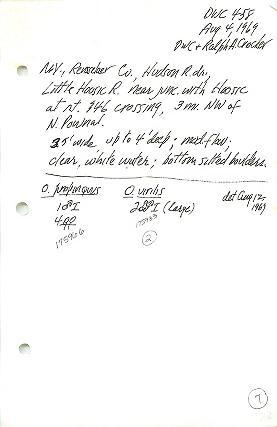 DWC 458
Aug 4, 1969
DWC + Ralph A. Crocker
N.Y., Rensselaer Co., Hudson R. dr.,
Little Hoosic R. near junc. with Hoosic
at rt. 346 crossing, 3 mi. NW of
N. Pownal.
35' wide, up to 4' deep; mod. flow.
clear, white water; bottom silted boulders.
O. propinquus O. virilis det Aug 12, 1969
1♂I 2♂I (large)
4♀
175936
2
7